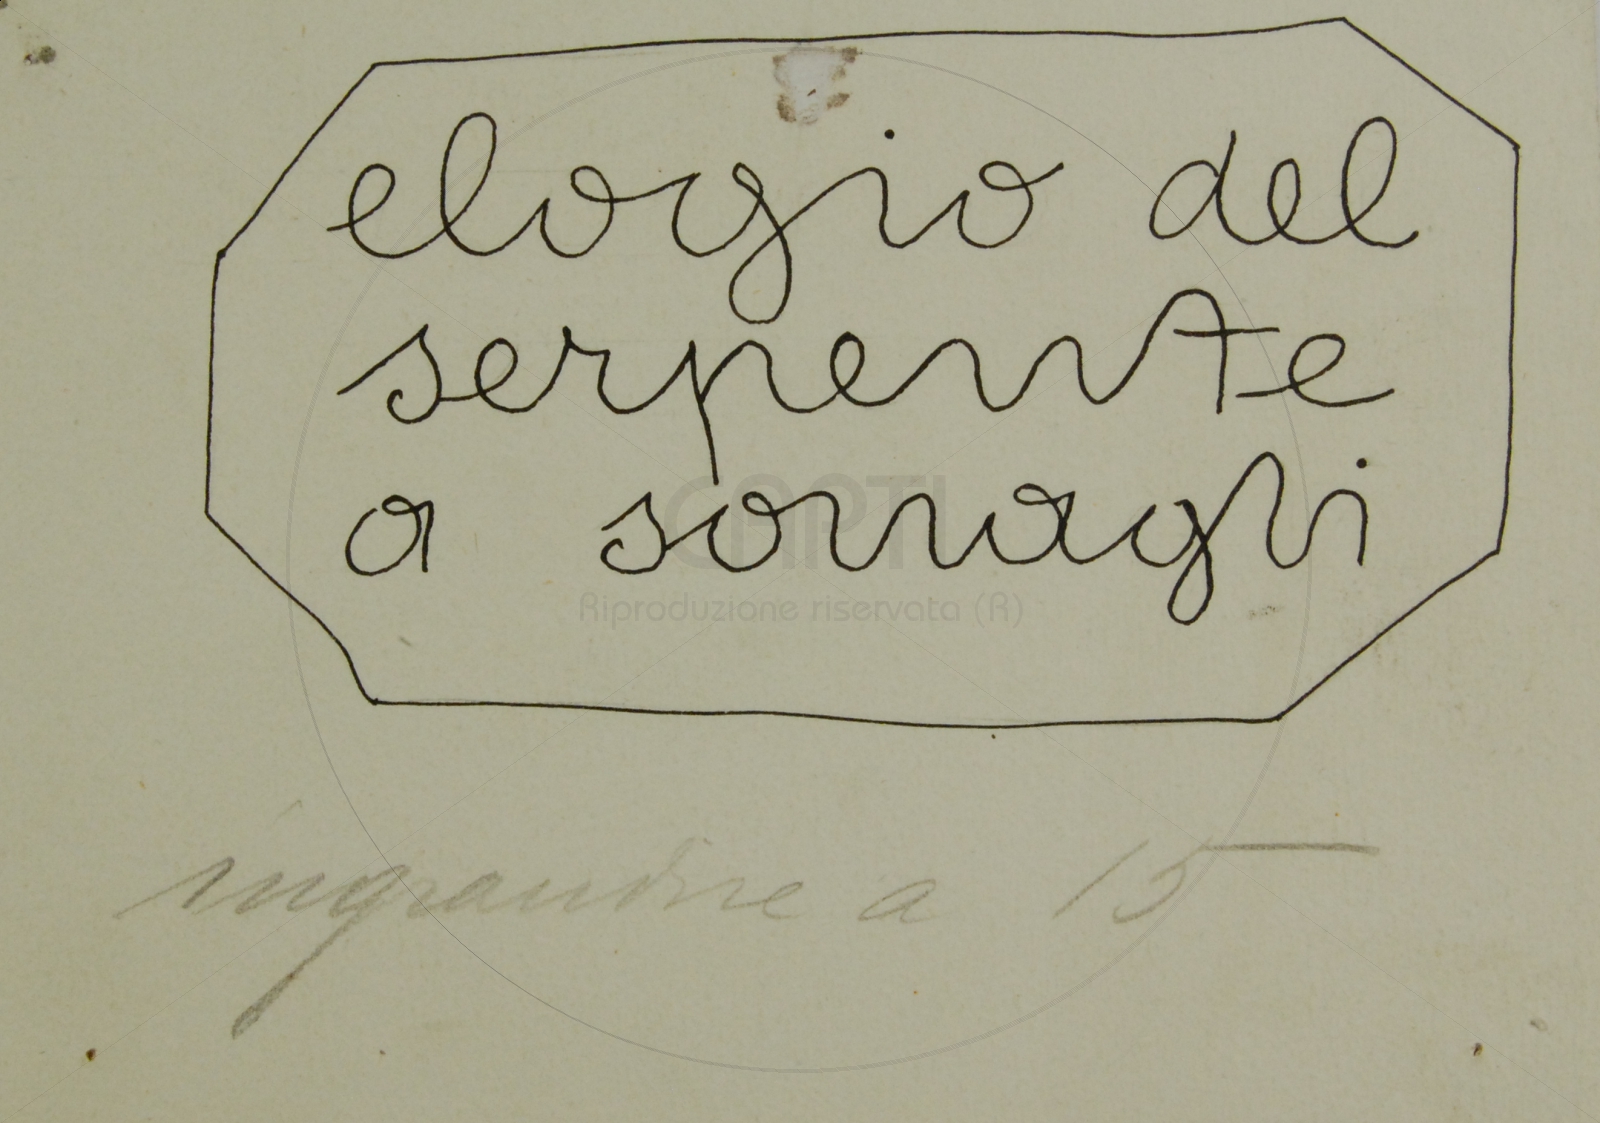 elogio del
serpente
a sonagli
CAPTI
Riproduzione riservata (R)
ingrandire a 15